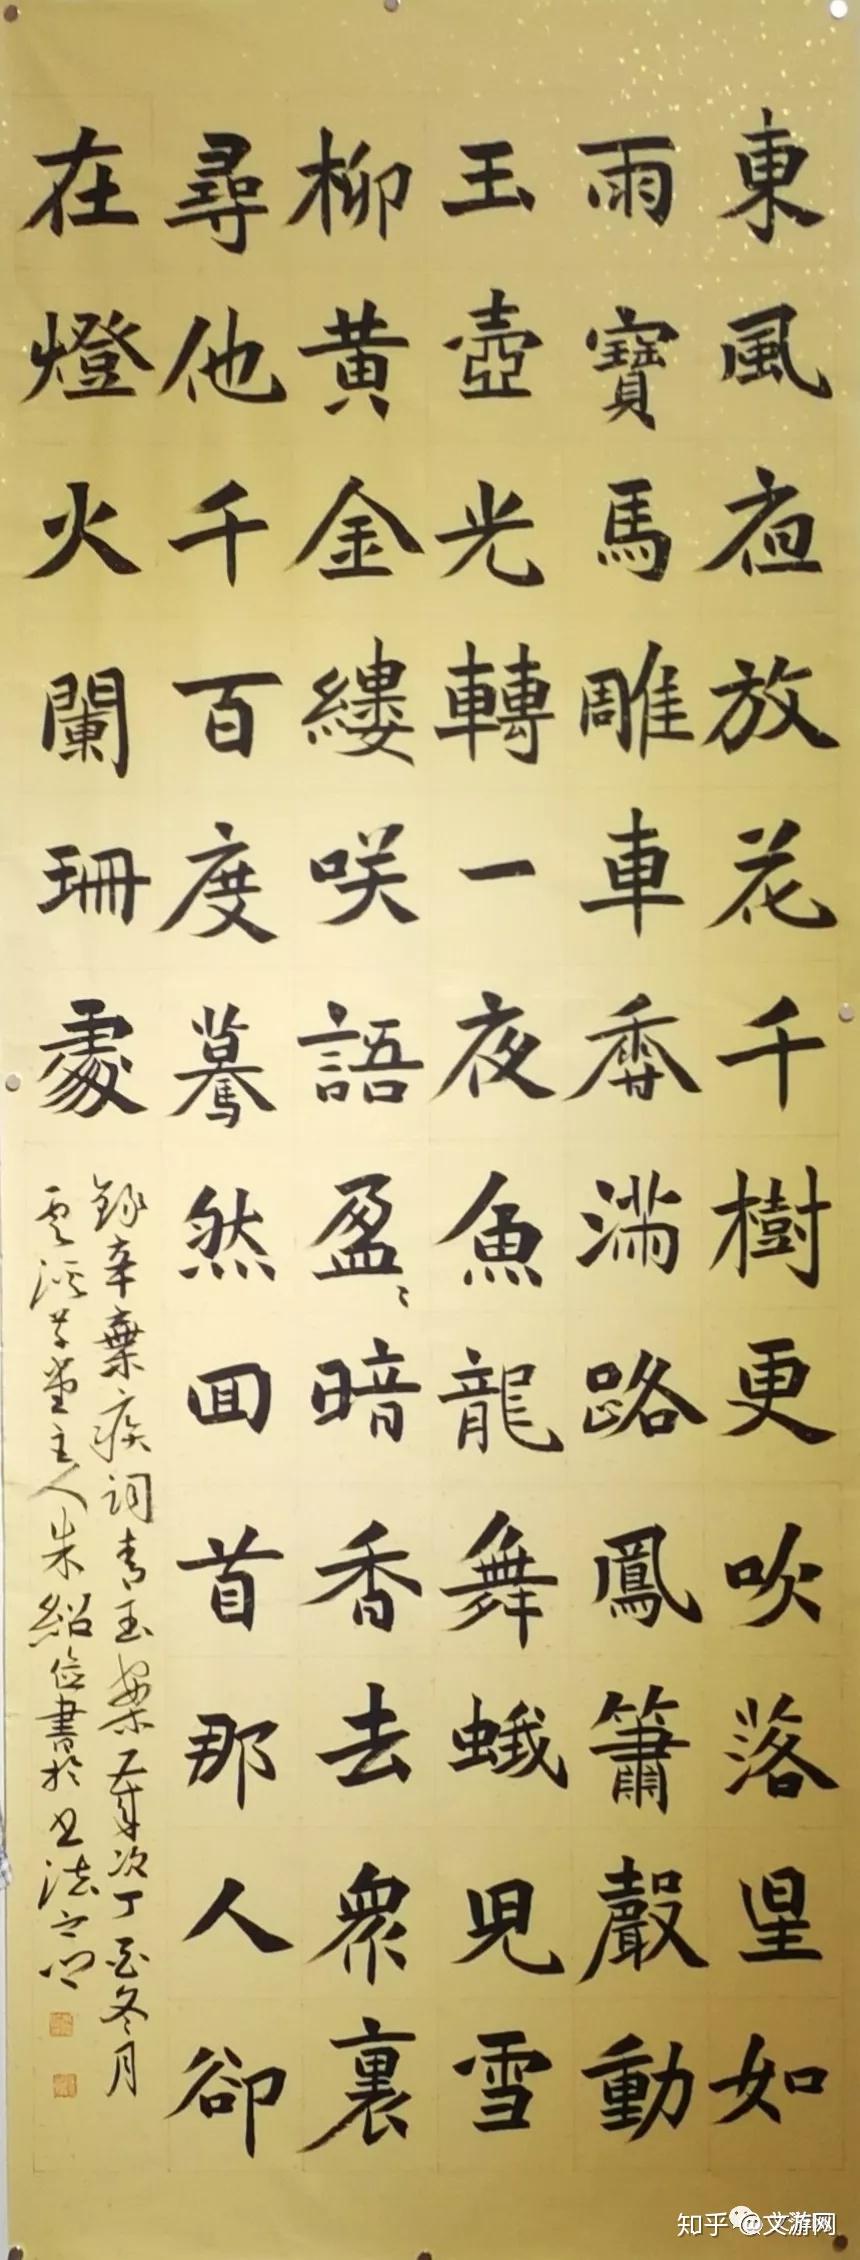 東風夜放花千樹更吹落星如
雨寶馬雕車香滿路鳳簫聲動
玉壺光轉一夜魚龍舞蛾兒雪
柳黃金縷咲語盈〻暗香去衆裏
尋他千百度驀然回首那人卻
在燈火闌珊處
錄辛棄疾詞青玉案歲次丁酉冬月
雲溪草堂主人朱紹俭書於書法之門
知乎 @文游网